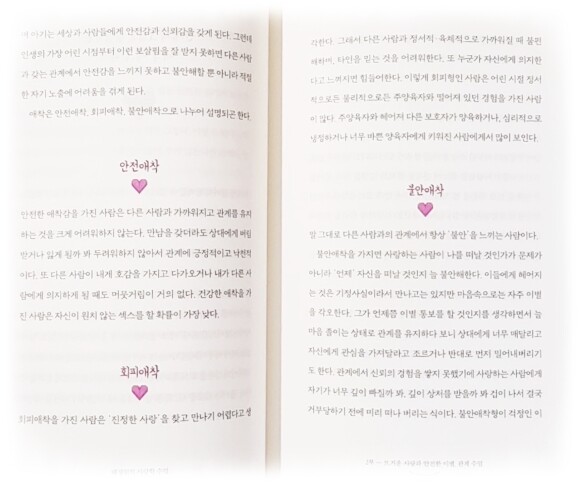 아가는 세상과 사람들에게 안전감과 신뢰감을 갖게 된다. 그런데
인생의 가장 어린 시절부터 이런 보살핌을 잘 받지 못하면 다른 사람
과 갖는 관계에서 안전감을 느끼지 못하고 불안해할 뿐 아니라 적절
한 자기 노출에 어려움을 겪게 된다.
애착은 안전애착, 회피애착, 불안애착으로 나누어 설명되곤 한다.
안전애착
안전한 애착감을 가진 사람은 다른 사람과 가까워지고 관계를 유지
하는 것을 크게 어려워하지 않는다. 만남을 갖더라도 상대에게 버림
받거나 잃게 될까 봐 두려워하지 않아서 관계에 긍정적이고 낙천적
이다. 또 다른 사람이 내게 호감을 가지고 다가오거나 내가 다른 사
람에게 의지하게 될 때도 머뭇거림이 거의 없다. 건강한 애착을 가
진 사람은 자신이 원치 않는 섹스를 할 확률이 가장 낮다.
회피애착
회피애착을 가진 사람은 '진정한 사랑'을 찾고 만나기 어렵다고 생
각한다. 그래서 다른 사람과 정서적·육체적으로 가까워질 때 불편
해하며, 타인을 믿는 것을 어려워한다. 또 누군가 자신에게 의지한
다고 느껴지면 힘들어한다. 이렇게 회피형인 사람은 어린 시절 정서
적으로든 물리적으로든 주양육자와 떨어져 있던 경험을 가진 사람
이 많다. 주양육자와 헤어져 다른 보호자가 양육하거나, 심리적으로
냉정하거나 너무 바쁜 양육자에게 키워진 사람에게서 많이 보인다.
불안애착
말 그대로 다른 사람과의 관계에서 항상 '불안'을 느끼는 사람이다.
불안애착을 가지면 사랑하는 사람이 나를 떠날 것인가가 문제가
아니라 '언제' 자신을 떠날 것인지 늘 불안해한다. 이들에게 헤어지
는 것은 기정사실이라서 만나고는 있지만 마음속으로는 자주 이별
을 각오한다. 그가 언제쯤 이별 통보를 할 것인지를 생각하면서 늘
마음 졸이는 상태로 관계를 유지하다 보니 상대에게 너무 매달리고
자신에게 관심을 가져달라고 조르거나 반대로 먼저 밀어내버리기
도 한다. 관계에서 신뢰의 경험을 쌓지 못했기에 사랑하는 사람에게
자기가 너무 깊이 빠질까 봐, 깊이 상처를 받을까 봐 겁이 나서 결국
거부당하기 전에 미리 떠나 버리는 식이다. 불안애착형이 걱정인 이